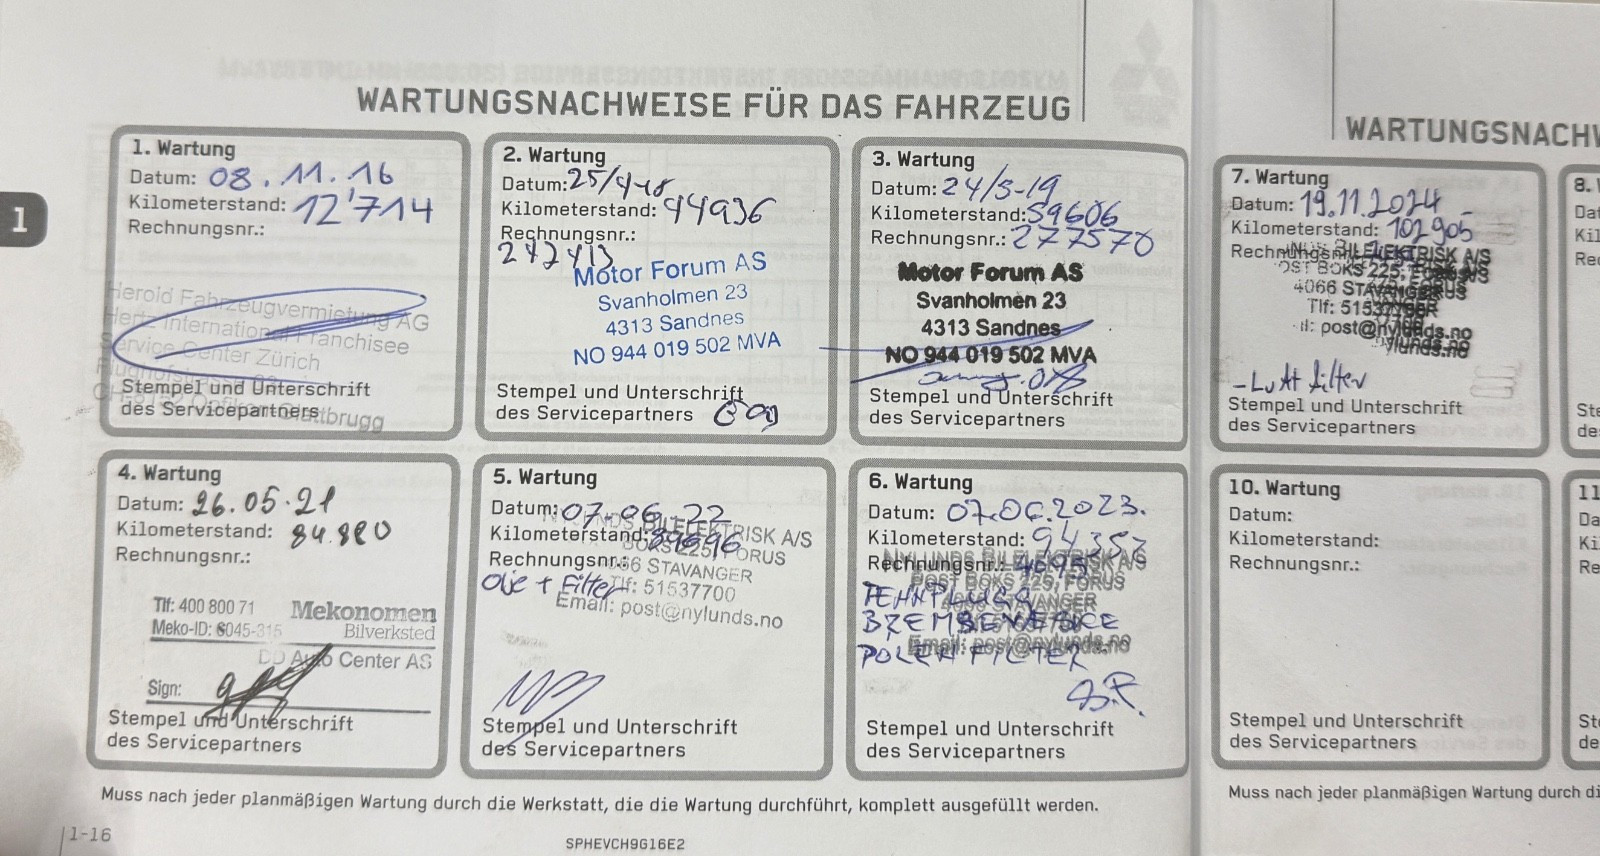 WARTUNGSNACHWEISE FÜR DAS FAHRZEUG
1
1. Wartung
Datum: 08.11.16
Kilometerstand: 12'714
Rechnungsnr.:
Herold Fahrzeugvermietung AG
Hertz International Franchisee
Service Center Zürich
Stempel und Unterschrift
des Servicepartners
Glattbrugg
2. Wartung
Datum: 25/4-18
Kilometerstand: 44936
Rechnungsnr.:
242413
Motor Forum AS
Svanholmen 23
4313 Sandnes
NO 944 019 502 MVA
Stempel und Unterschrift
des Servicepartners
3. Wartung
Datum: 24/5-19
Kilometerstand: 59606
Rechnungsnr.: 277570
Motor Forum AS
Svanholmen 23
4313 Sandnes
NO 944 019 502 MVA
Stempel und Unterschrift
des Servicepartners
4. Wartung
Datum: 26.05.21
Kilometerstand: 84.880
Rechnungsnr.:
Tlf: 400 800 71 Mekonomen
Meko-ID: 6045-315 Bilverksted
DD Auto Center AS
Sign:
Stempel und Unterschrift
des Servicepartners
5. Wartung
Datum: 07-06-22
NYLUNDS BILELEKTRISK A/S
Kilometerstand: 89696
BOKS 225, FORUS
Rechnungsnr.:
4066 STAVANGER
Olje + Filter
Tlf: 51537700
Email: post@nylunds.no
Stempel und Unterschrift
des Servicepartners
6. Wartung
Datum: 07.06.2023.
Kilometerstand: 94357
NYLUNDS BILELEKTRISK A/S
Rechnungsnr.:
POST BOKS 225, FORUS
TENNPLUGG
4066 STAVANGER
BREMSEVÆSKE
Email: post@nylunds.no
POLLENFILTER
Stempel und Unterschrift
des Servicepartners
Muss nach jeder planmäßigen Wartung durch die Werkstatt, die die Wartung durchführt, komplett ausgefüllt werden.
1-16
SPHEVCH9G16E2
WARTUNGSNACHW
7. Wartung
Datum: 19.11.2024
Kilometerstand: 102905
Rechnungsnr.:
BILELEKTRISK A/S
POST BOKS 225, FORUS
4066 STAVANGER
Tlf: 51537700
post@nylunds.no
- Luft filter
Stempel und Unterschrift
des Servicepartners
8.
Dat
Kil
Rec
Ste
des
10. Wartung
Datum:
Kilometerstand:
Rechnungsnr.:
Stempel und Unterschrift
des Servicepartners
11
Da
Ki
Re
St
de
Muss nach jeder planmäßigen Wartung durch di